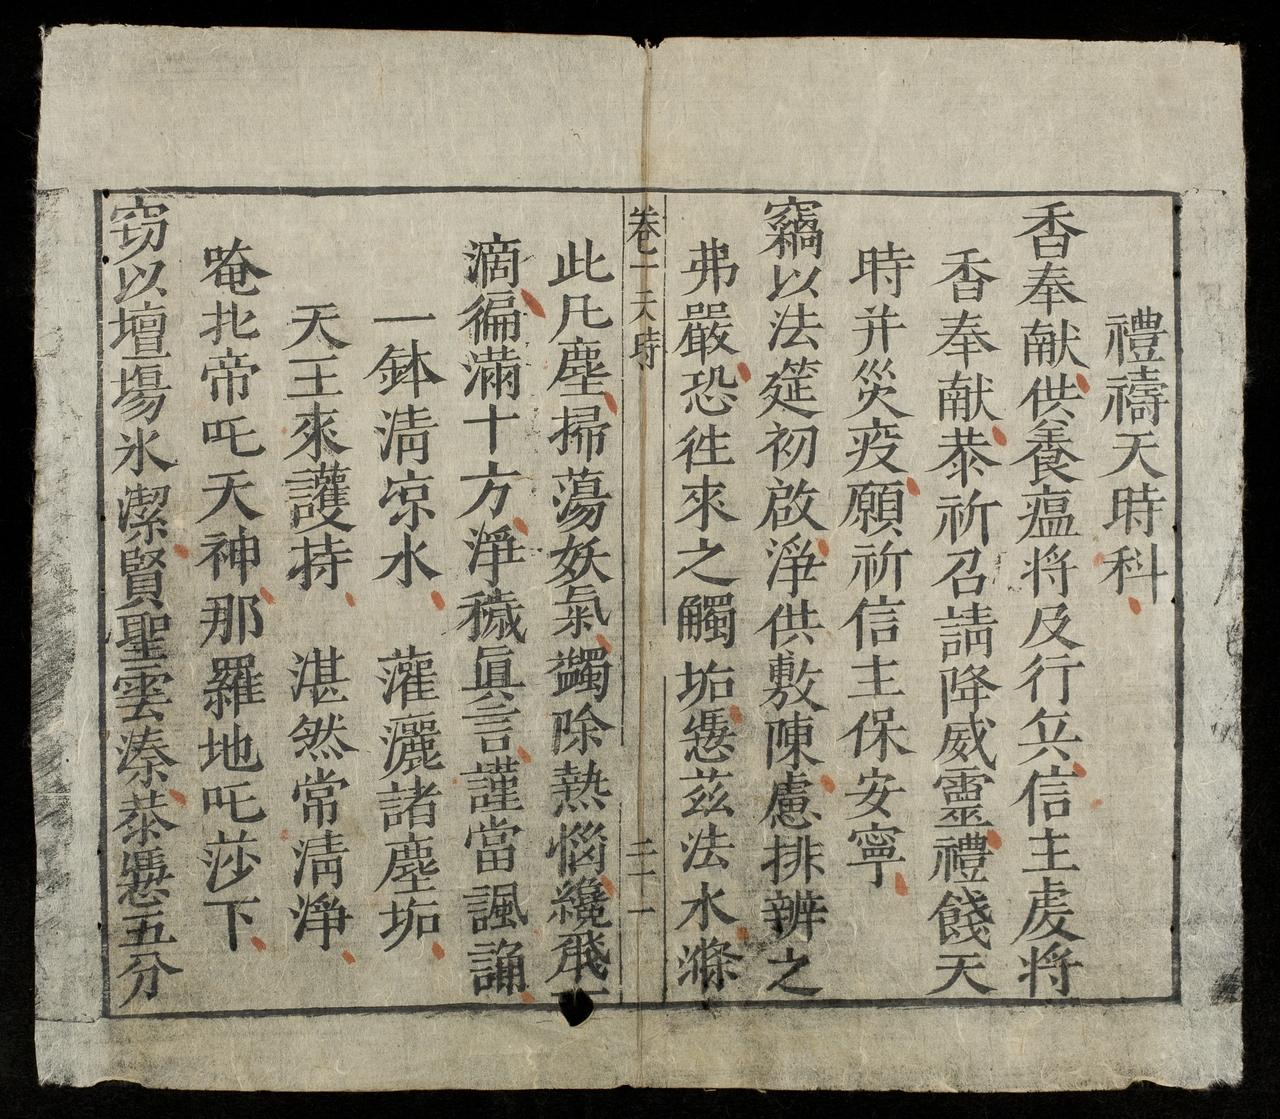 禮禱天時科
香奉献供養瘟将及行兵信主虔将
香奉献恭祈召請降威靈禮餞天
時并災疫願祈信主保安寧
竊以法筵初啟淨供敷陳慮排辦之
弗嚴恐徃來之觸垢慿茲法水滌
卷一天時 二十一
此凡塵掃蕩妖氣蠲除熱惱纔飛一
滴徧滿十方淨穢眞言謹當諷誦
一鉢清凉水 灌灑諸塵垢
天王來護持 湛然常清淨
唵北帝吒天神那羅地吒莎下
窃以壇場氷潔賢聖雲溱恭慿五分